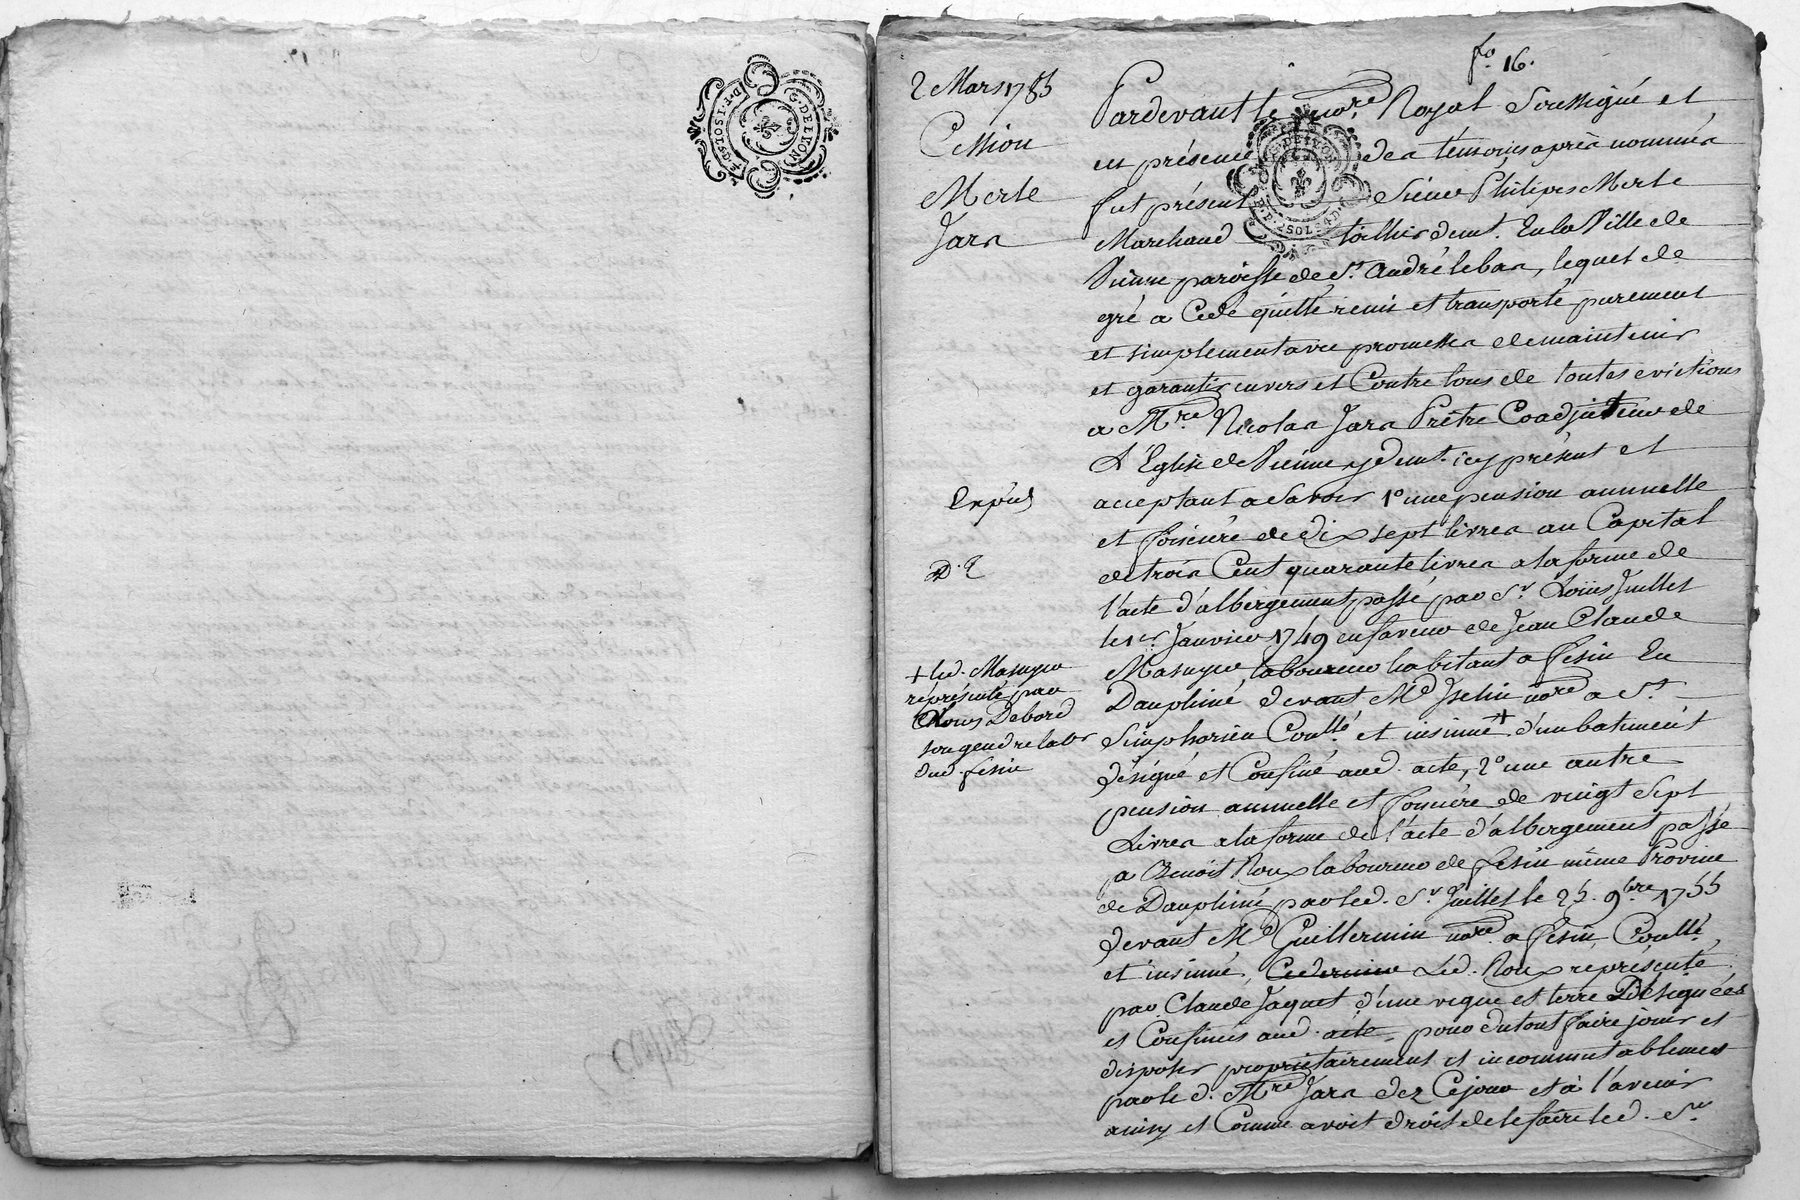 G. DE LYON
D. E. 2 SOLS 4 D.
fo. 16.
2 Mars 1785
Cession
Merle
Jars
Pardevant le nore. Royal Soussigné et
en présence des témoins après nommés
fut présent Sieur Philipes Merle
Marchand toillier demt. En la Ville de
Vienne paroisse de St. André le bas, lequel de
gré a Cédé quitté remis et transporté purement
et simplement avec promesses de maintenir
et garantir envers et Contre tous de toutes evictions
a Mre. Nicolas Jars Prêtre Coadjuteur de
L'Eglise de Vienne y demt. icy présent et
Expié
acceptant a Savoir 1o une pension annuelle
et fonciére de dix sept livres au Capital
D. 2
de trois Cent quarante livres a la forme de
l'acte d'albergement passé par Sr. Loüis Juillet
le 1er. Janvier 1749 en faveur de Jean Claude
Masuyer laboureur habitant a fesin En
Dauphiné devant Me. Iselin nore a St.
Simphorien Conllé. et insinué + d'un batiment
désigné et Confiné aud. acte, 2o une autre
+ led. Masuyer
réprésenté par
Loüis Debord
son gendre labr
dud. fesin
pension annuelle et fonciére de vingt Sept
Livres a la forme de l'acte d'albergement passé
a Benoit Roux laboureur de fesin même Province
de Dauphiné par led. Sr. Juillet le 25. 9bre. 1755
devant Me. Guillermin nore. a fesin Conllé.
et insinué, Led. Roux réprésenté
par Claude Jaquet d'une vigne et terre Désignées
et Confinés aud. acte, pour du tout faire jouir et
disposer proprietairement et incommutablement
par led. Mre. Jars dez Ce jour et à l'avenir
ainsy et Comme avoit droit de le faire led. Sr.